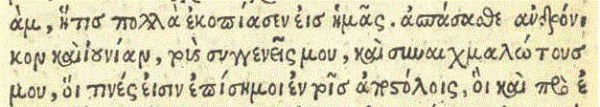 ὰμ, ἥτις πολλὰ ἐκοπίασεν εἰς ἡμᾶς. ἀσπάσασθε ἀνδρόνι
κον καὶ ἰουνίαν, τοὺς συγγενεῖς μου, καὶ συναιχμαλώτους
μου, ὅι τινές εἰσιν ἐπίσημοι ἐν τοῖς ἀποστόλοις, ὃι καὶ πρὸ ἐ